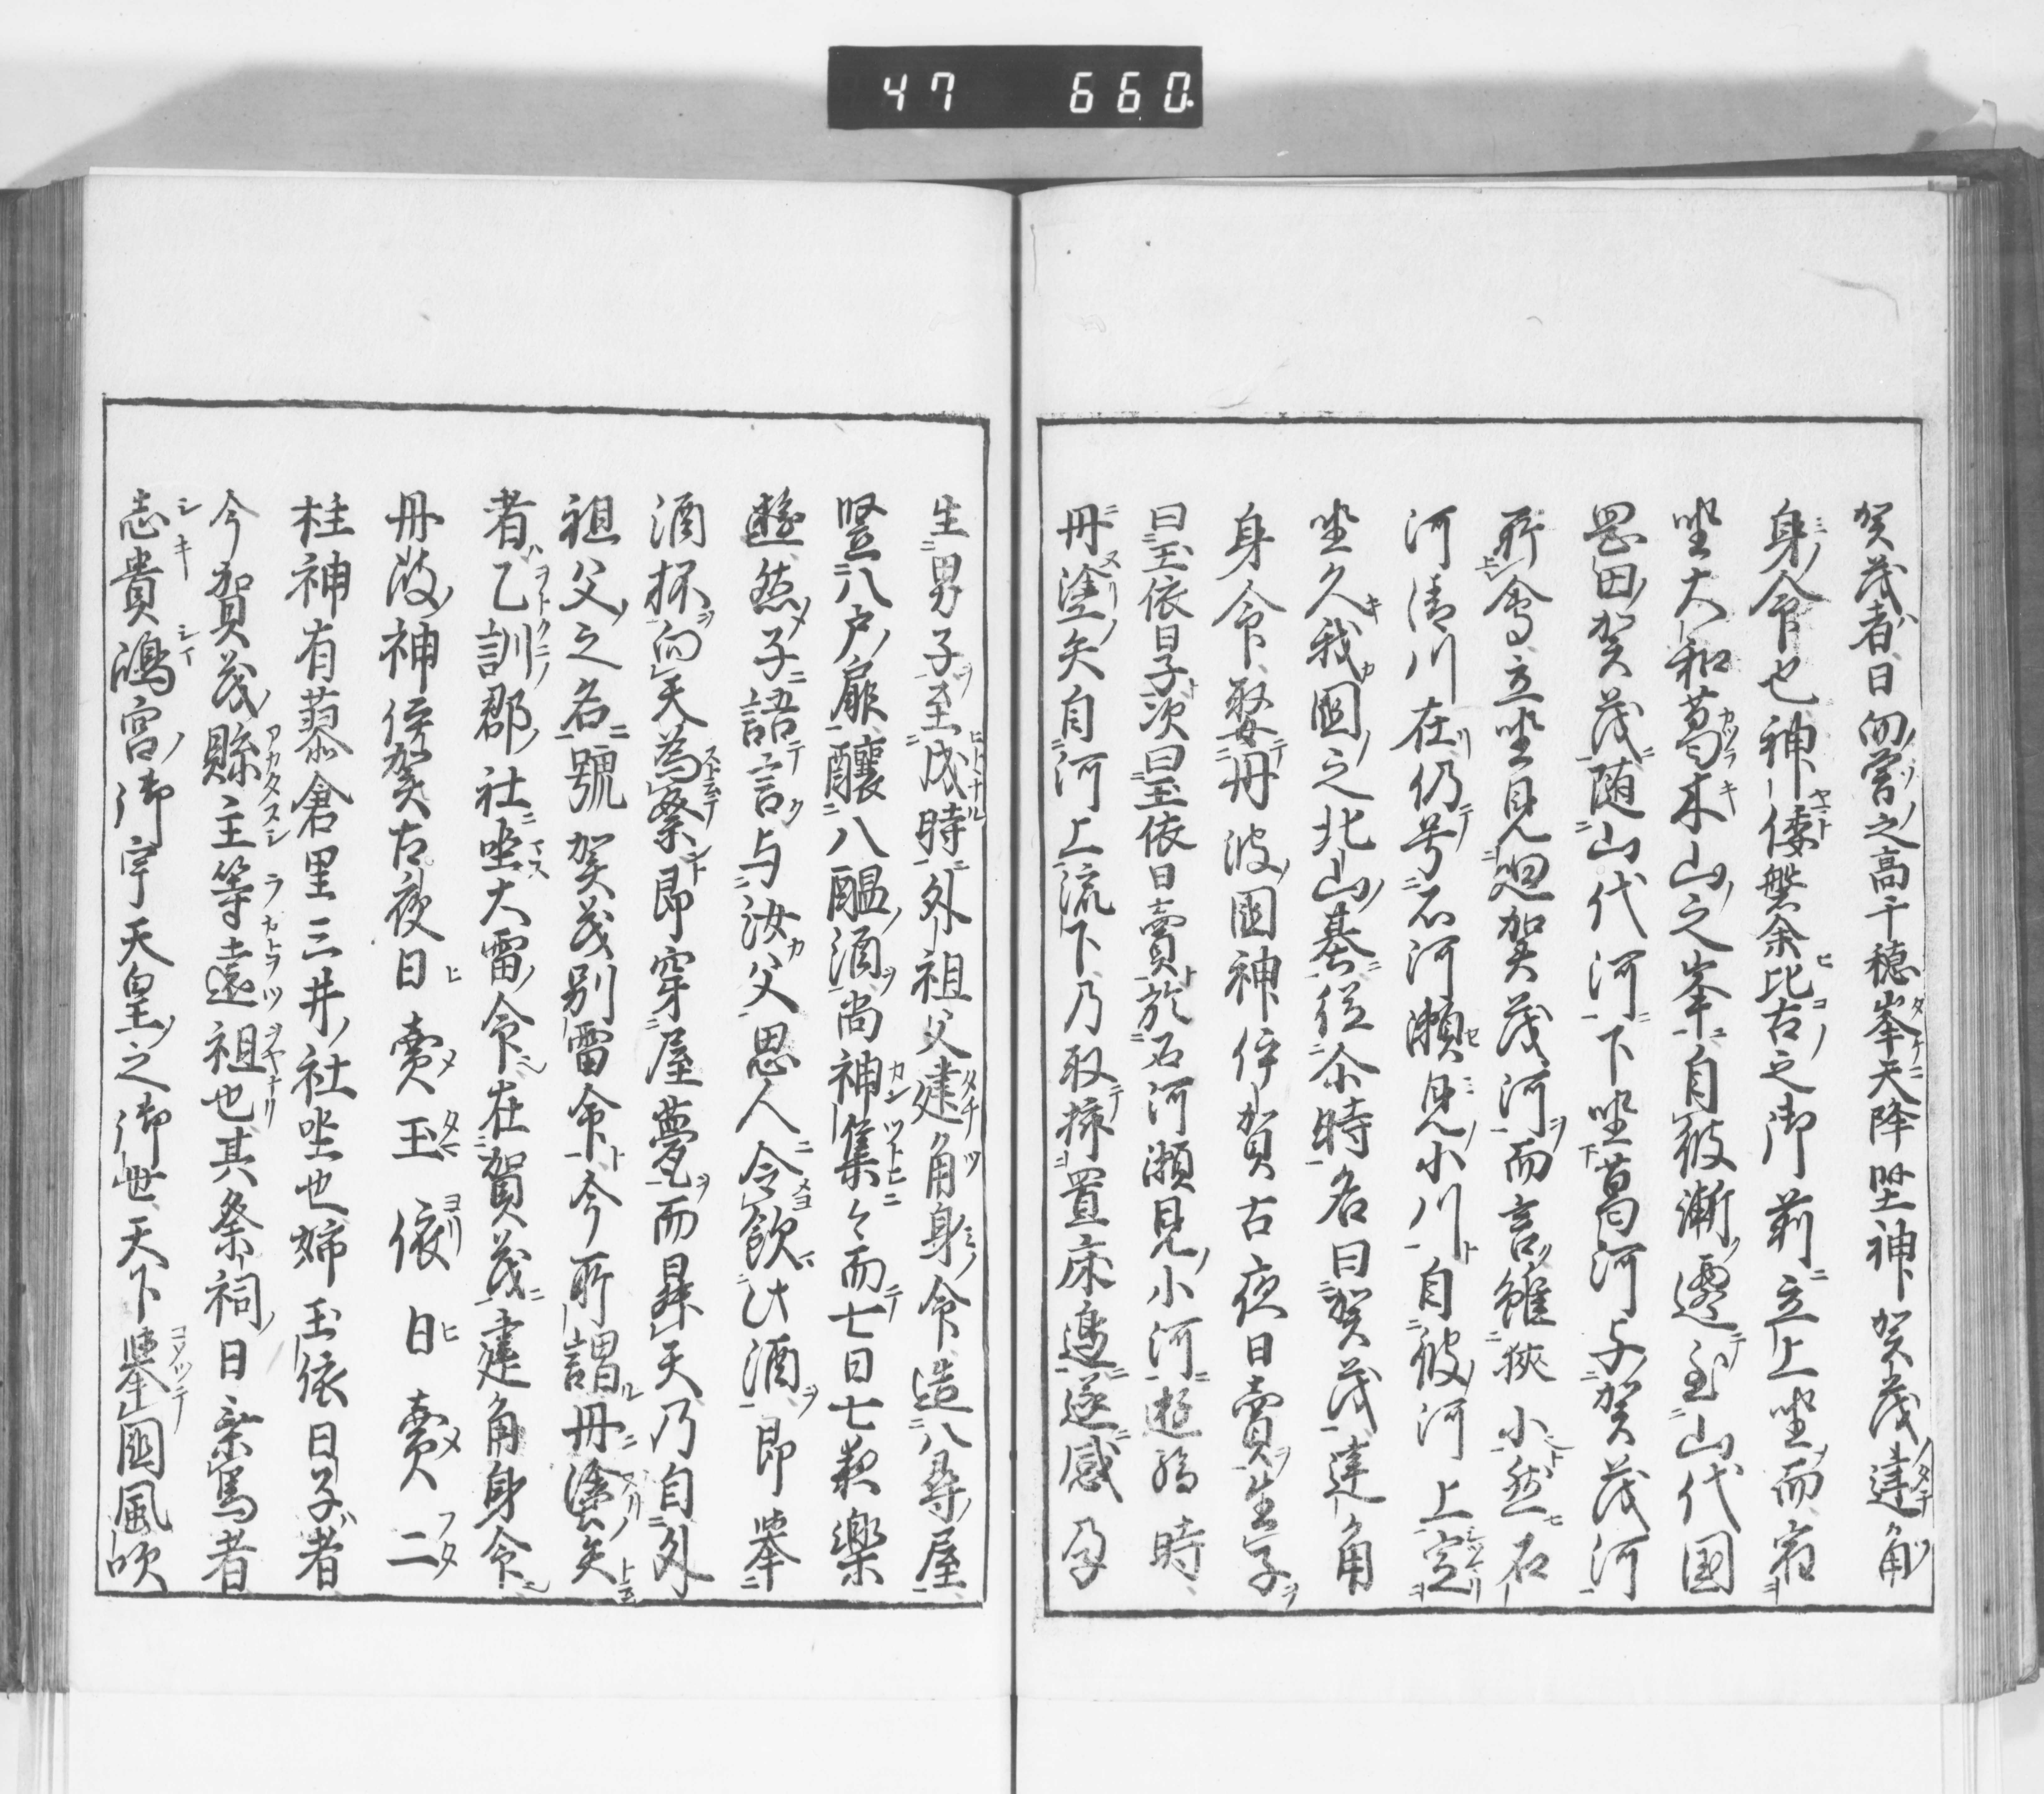 47 660
賀茂者日向曽之高千穂峯天降坐神賀茂建角
身命也神倭磐余比古之御前立上坐而宿
坐大和葛木山之峯自彼漸遷至山代国
岡田賀茂随山代河下坐葛河与賀茂河
所會立坐見廻賀茂河而言雖狭小然石
河清川在仍号石河瀬見小川自彼河上定
坐久我國之北山基従尒時名曰賀茂建角
身命娶丹波國神伊賀古夜日賣生子
曰玉依日子次曰玉依日賣於石河瀬見小河遊為時
丹塗矢自河上流下乃取揷置床邊遂感孕
生男子至成時外祖父建角身命造八尋屋
竪八戸扉醸八醞酒而神集々而七日七夜樂
遊然子語言与汝父思人令飲此酒即挙
酒杯向天為祭即穿屋甍而昇天乃自外
祖父之名號賀茂別雷命今所謂丹塗矢
者乙訓郡社坐大雷命在賀茂建角身命
丹波神伊賀古夜日賣玉依日賣二
柱神有蓼倉里三井社坐也姉玉依日子者
今賀茂縣主等遠祖也其祭祠日乗馬者
志貴嶋宮御宇天皇之御世天下挙國風吹